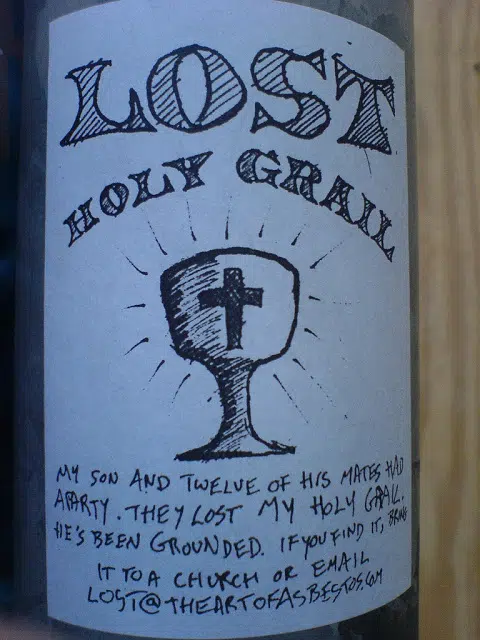 LOST
HOLY GRAIL
MY SON AND TWELVE OF HIS MATES HAD
A PARTY. THEY LOST MY HOLY GRAIL.
HE'S BEEN GROUNDED. IF YOU FIND IT, BRING
IT TO A CHURCH OR EMAIL
LOST@THEARTOFASBESTOS.COM